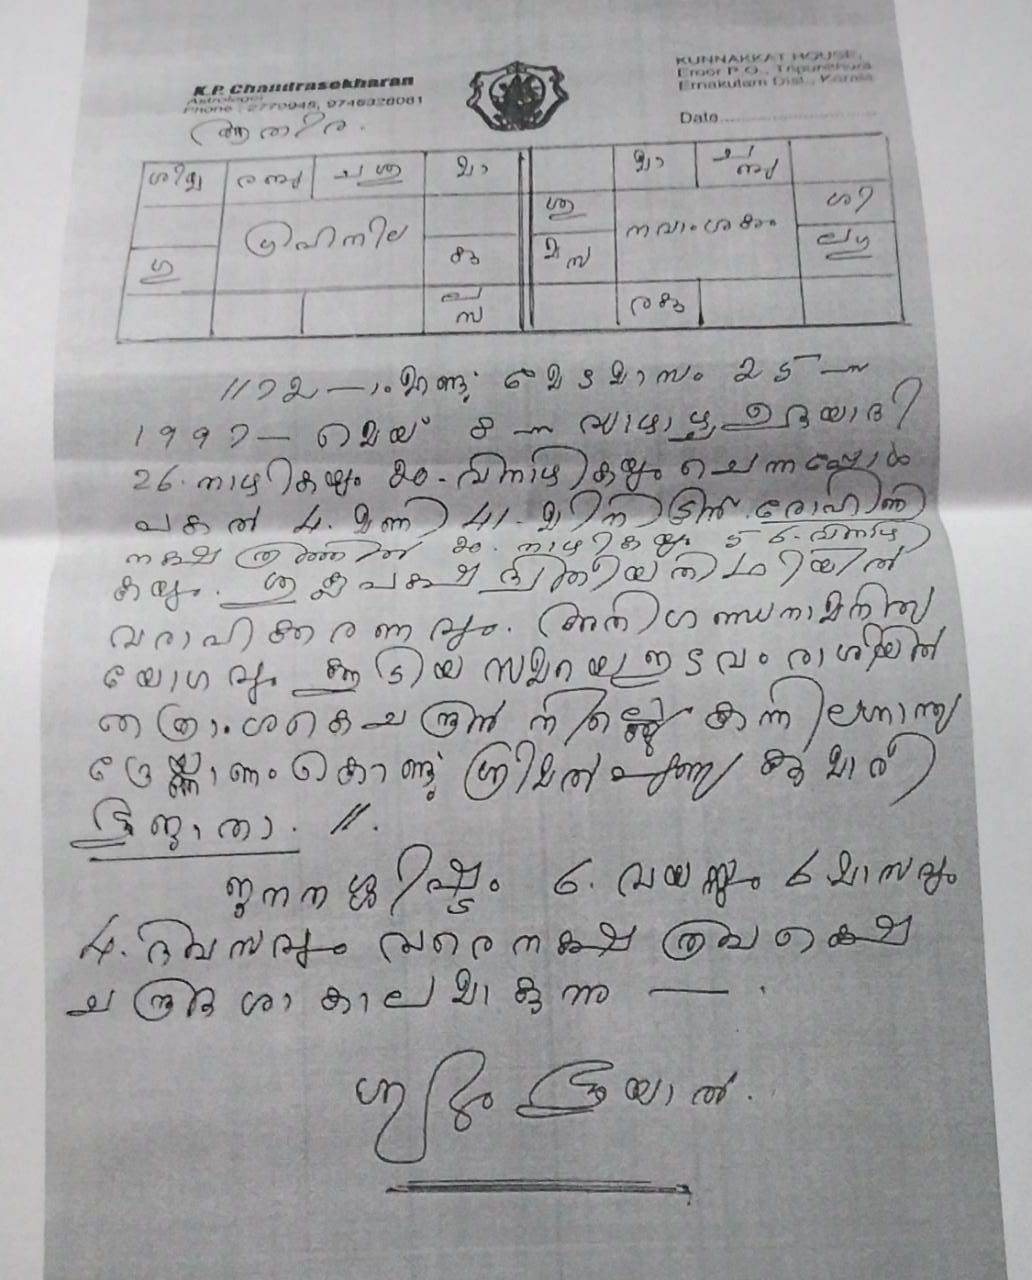 K.P. Chandrasekharan
Astrologer
Phone : 2770945, 9746328081
KUNNAKKAT HOUSE,
Eroor P.O., Tripunithura
Ernakulam Dist., Kerala
Date
ആതിര.
ശി രബു ചശു മാ
ഗ്രഹനില
കു
ഗു
ല
മാ
ശു നവാംശകം ശി
ലഗു
രകു
1172 —ാംആണ്ട് മേടമാസം 25 —ന
1997 — മെയ് 8 —ന വ്യാഴാഴ്ച ഉദയാദി
26. നാഴികയും 20. വിനാഴികയും ചെന്നപ്പോൾ
പകൽ 4. മണി 41. മിനിട്ടിന് രോഹിണി
നക്ഷത്രത്തിൽ നാഴികയും 56. വിനാഴി
കയും. ശുക്ലപക്ഷ ദ്വിതീയതിഥിയിൽ
വരാഹികരണവും. അതിഗണ്ഡനാമനിത്യ
യോഗവും കൂടിയ സമയം ഇടവം രാശിയിൽ
ചന്ദ്രൻ നില്ക്കെ കന്നിലഗ്നാന്ത്യ
ദ്രേക്കാണംകൊണ്ട് ശ്രീമൽ കുമാരീ
ജാതാ. //.
ജനനശിഷ്ടം 6. വയസ്സും 6 മാസവും
4. ദിവസവും വരെ നക്ഷത്രവശെ
ചന്ദ്രദശാകാലമാകുന്നു — .
ശുഭം ഭൂയാൽ.